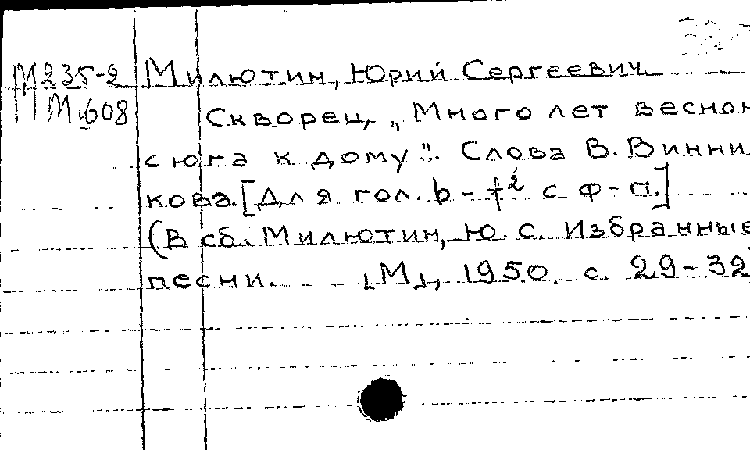 М235-2 Милютин, Юрий Сергеевич
М.608 Скворец, „Много лет весной
с юга к дому". Слова В. Винни
кова. [Для гол. b-f² с ф-п.]
(В сб. Милютин, Ю. С. Избранные
песни. [М], 1950. с. 29-32